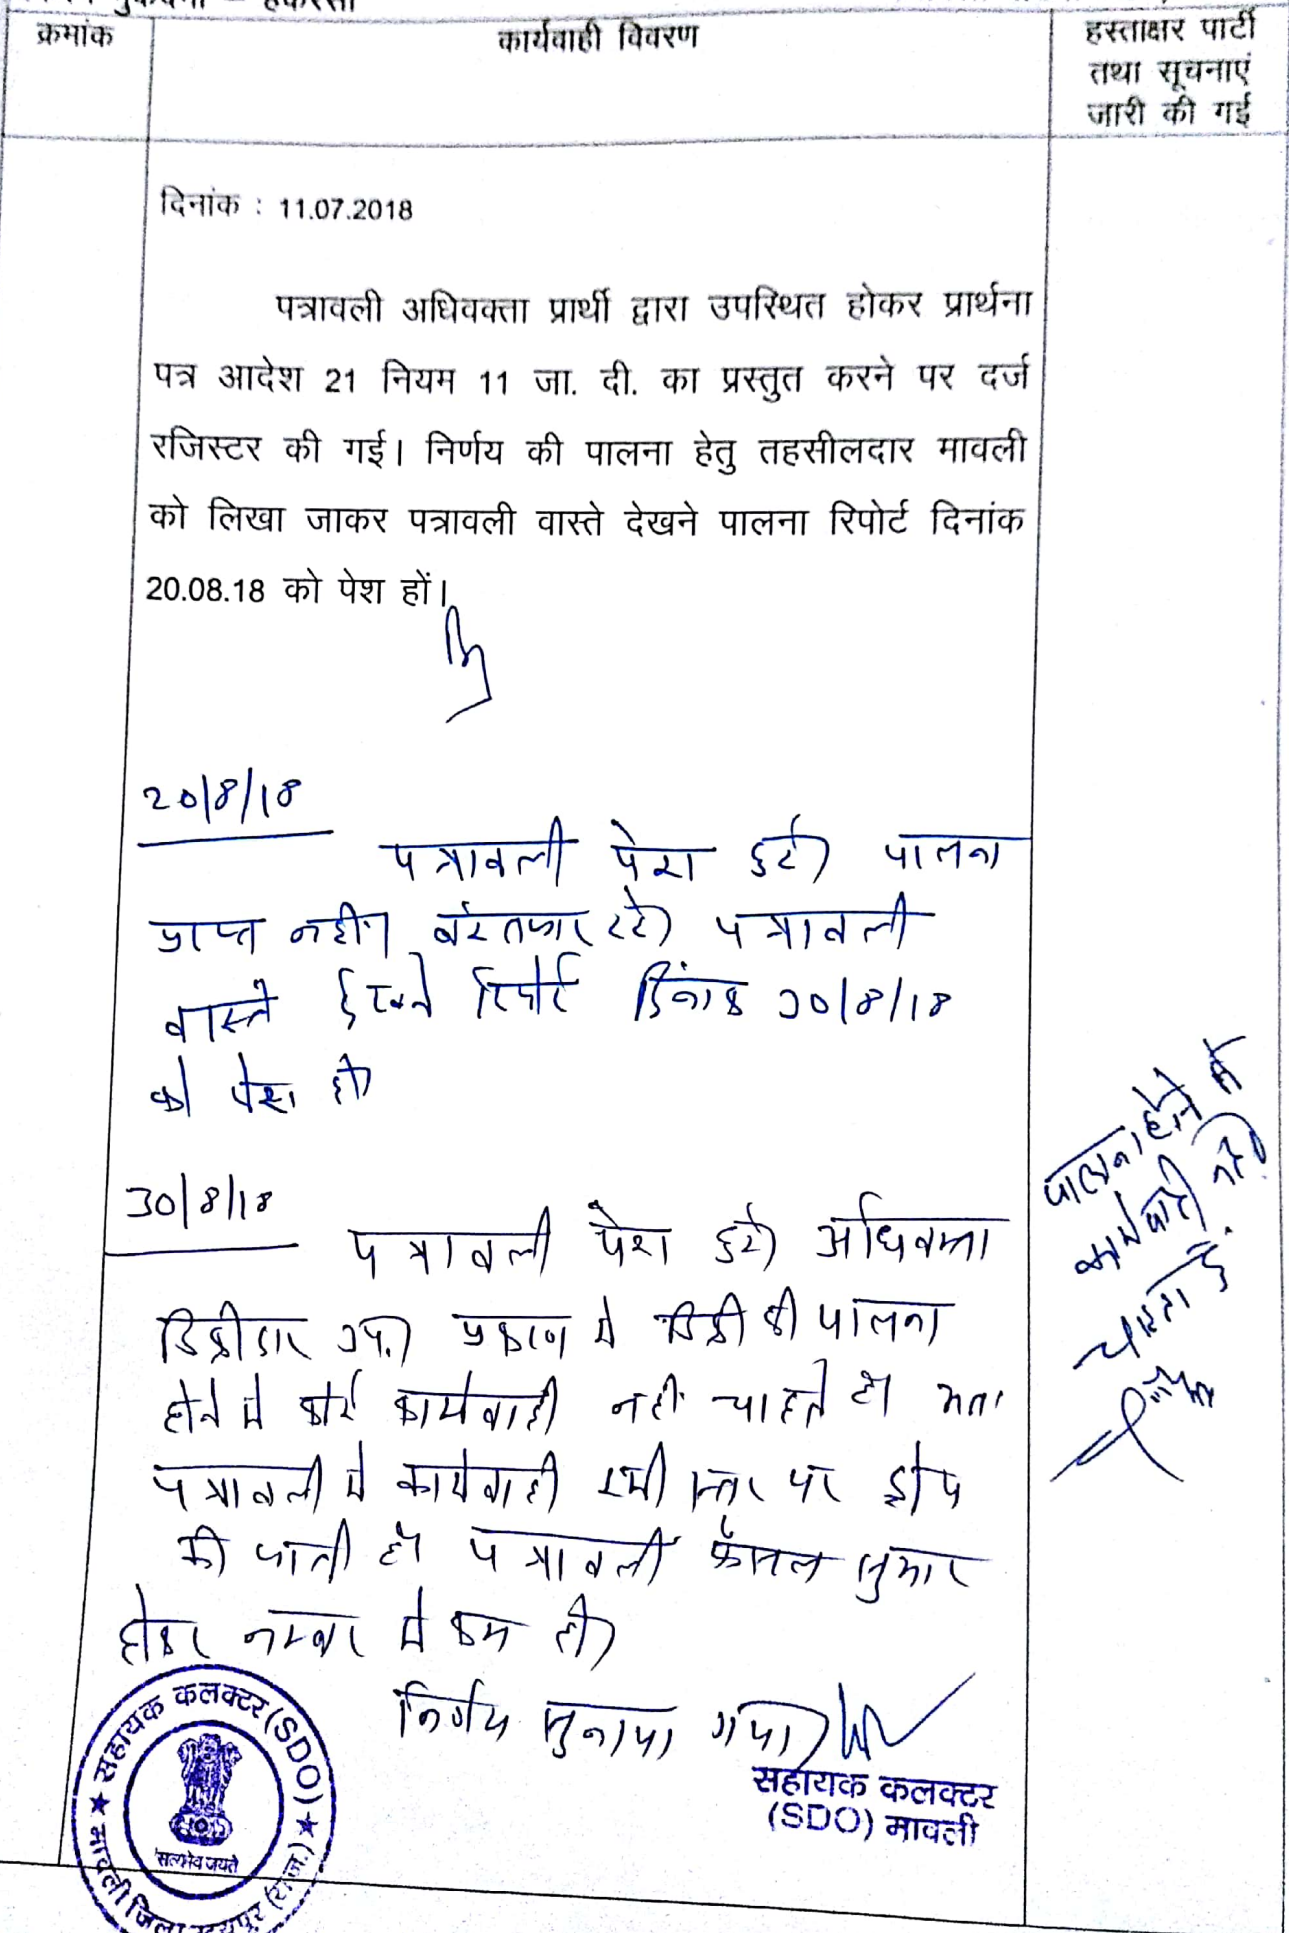 क्रमांक
कार्यवाही विवरण
हस्ताक्षर पार्टी
तथा सूचनाएं
जारी की गई
दिनांक : 11.07.2018
पत्रावली अधिवक्ता प्रार्थी द्वारा उपस्थित होकर प्रार्थना
पत्र आदेश 21 नियम 11 जा. दी. का प्रस्तुत करने पर दर्ज
रजिस्टर की गई। निर्णय की पालना हेतु तहसीलदार मावली
को लिखा जाकर पत्रावली वास्ते देखने पालना रिपोर्ट दिनांक
20.08.18 को पेश हों।
20/8/18
पत्रावली पेश हुई। पालना
प्राप्त नहीं। पत्रावली
वास्ते देखने रिपोर्ट दिनांक 30/8/18
को पेश हो।
30/8/18
पत्रावली पेश हुई। अधिवक्ता
डिक्रीदार उप.। प्रकरण में डिक्री की पालना
होने से कोई कार्यवाही नहीं चाहते है। अतः
पत्रावली में कार्यवाही इसी स्तर पर ड्रोप
की जाती है। पत्रावली फैसल शुमार
होकर नम्बर से कम हो।
निर्णय सुनाया गया।
सहायक कलक्टर
(SDO) मावली
पालना होने से
कार्यवाही नहीं
चाहता हूं
★ सहायक कलक्टर (SDO) ★
मावली जिला उदयपुर (राज.)
सत्यमेव जयते